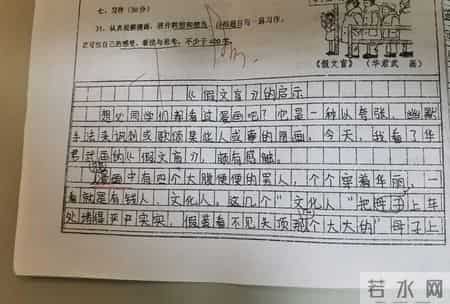 七、习作（30分）
31、认真观察漫画，展开联想和想象，自拟题目写一篇习作。
注意写出自己的感受、看法与思考。不少于400字。
《假文盲》（华君武 画）
《假文盲》的启示
想必同学们都看过漫画吧？它是一种以夸张、幽默
手法来讽刺或歌颂某些人或事的图画，今天，我看了华
君武画的《假文盲》，颇有感触。
漫画中有四个大腹便便的男人，个个穿着华丽，一
看就是有钱人、文化人，这几个“文化人”把母子上车
处堵得严严实实，假装看不见头顶那个大大的“母子上
若水网